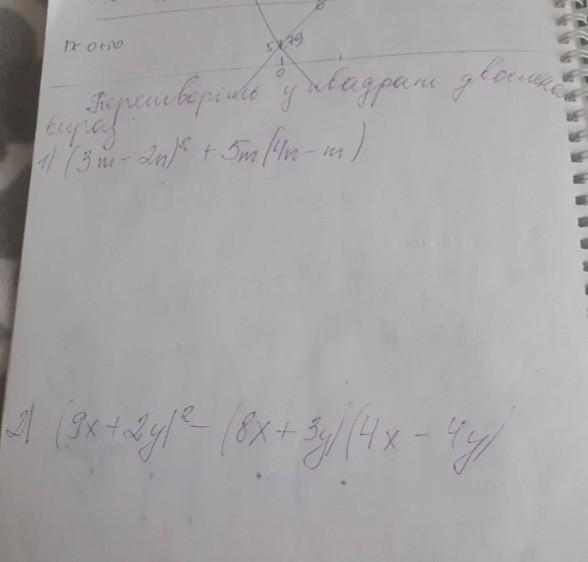 5 79
0
Перетворіть у квадрат двочлена
вираз:
1) (3m - 2n)² + 5m(4n - m)
2) (9x + 2y)² - (8x + 3y)(4x - 4y)